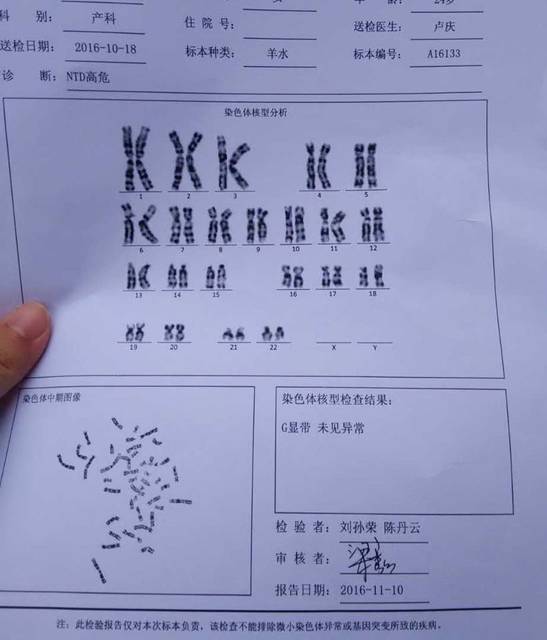 科 别： 产科 住 院 号： 送检医生： 卢庆
送检日期： 2016-10-18 标本种类： 羊水 标本编号： A16133
诊 断： NTD高危
染色体核型分析
1 2 3 4 5
6 7 8 9 10 11 12
13 14 15 16 17 18
19 20 21 22 X Y
染色体中期图像
染色体核型检查结果：
G显带 未见异常
检 验 者： 刘孙荣 陈丹云
审 核 者：
报告日期： 2016-11-10
注：此检验报告仅对本次标本负责，该检查不能排除微小染色体异常或基因突变所致的疾病。